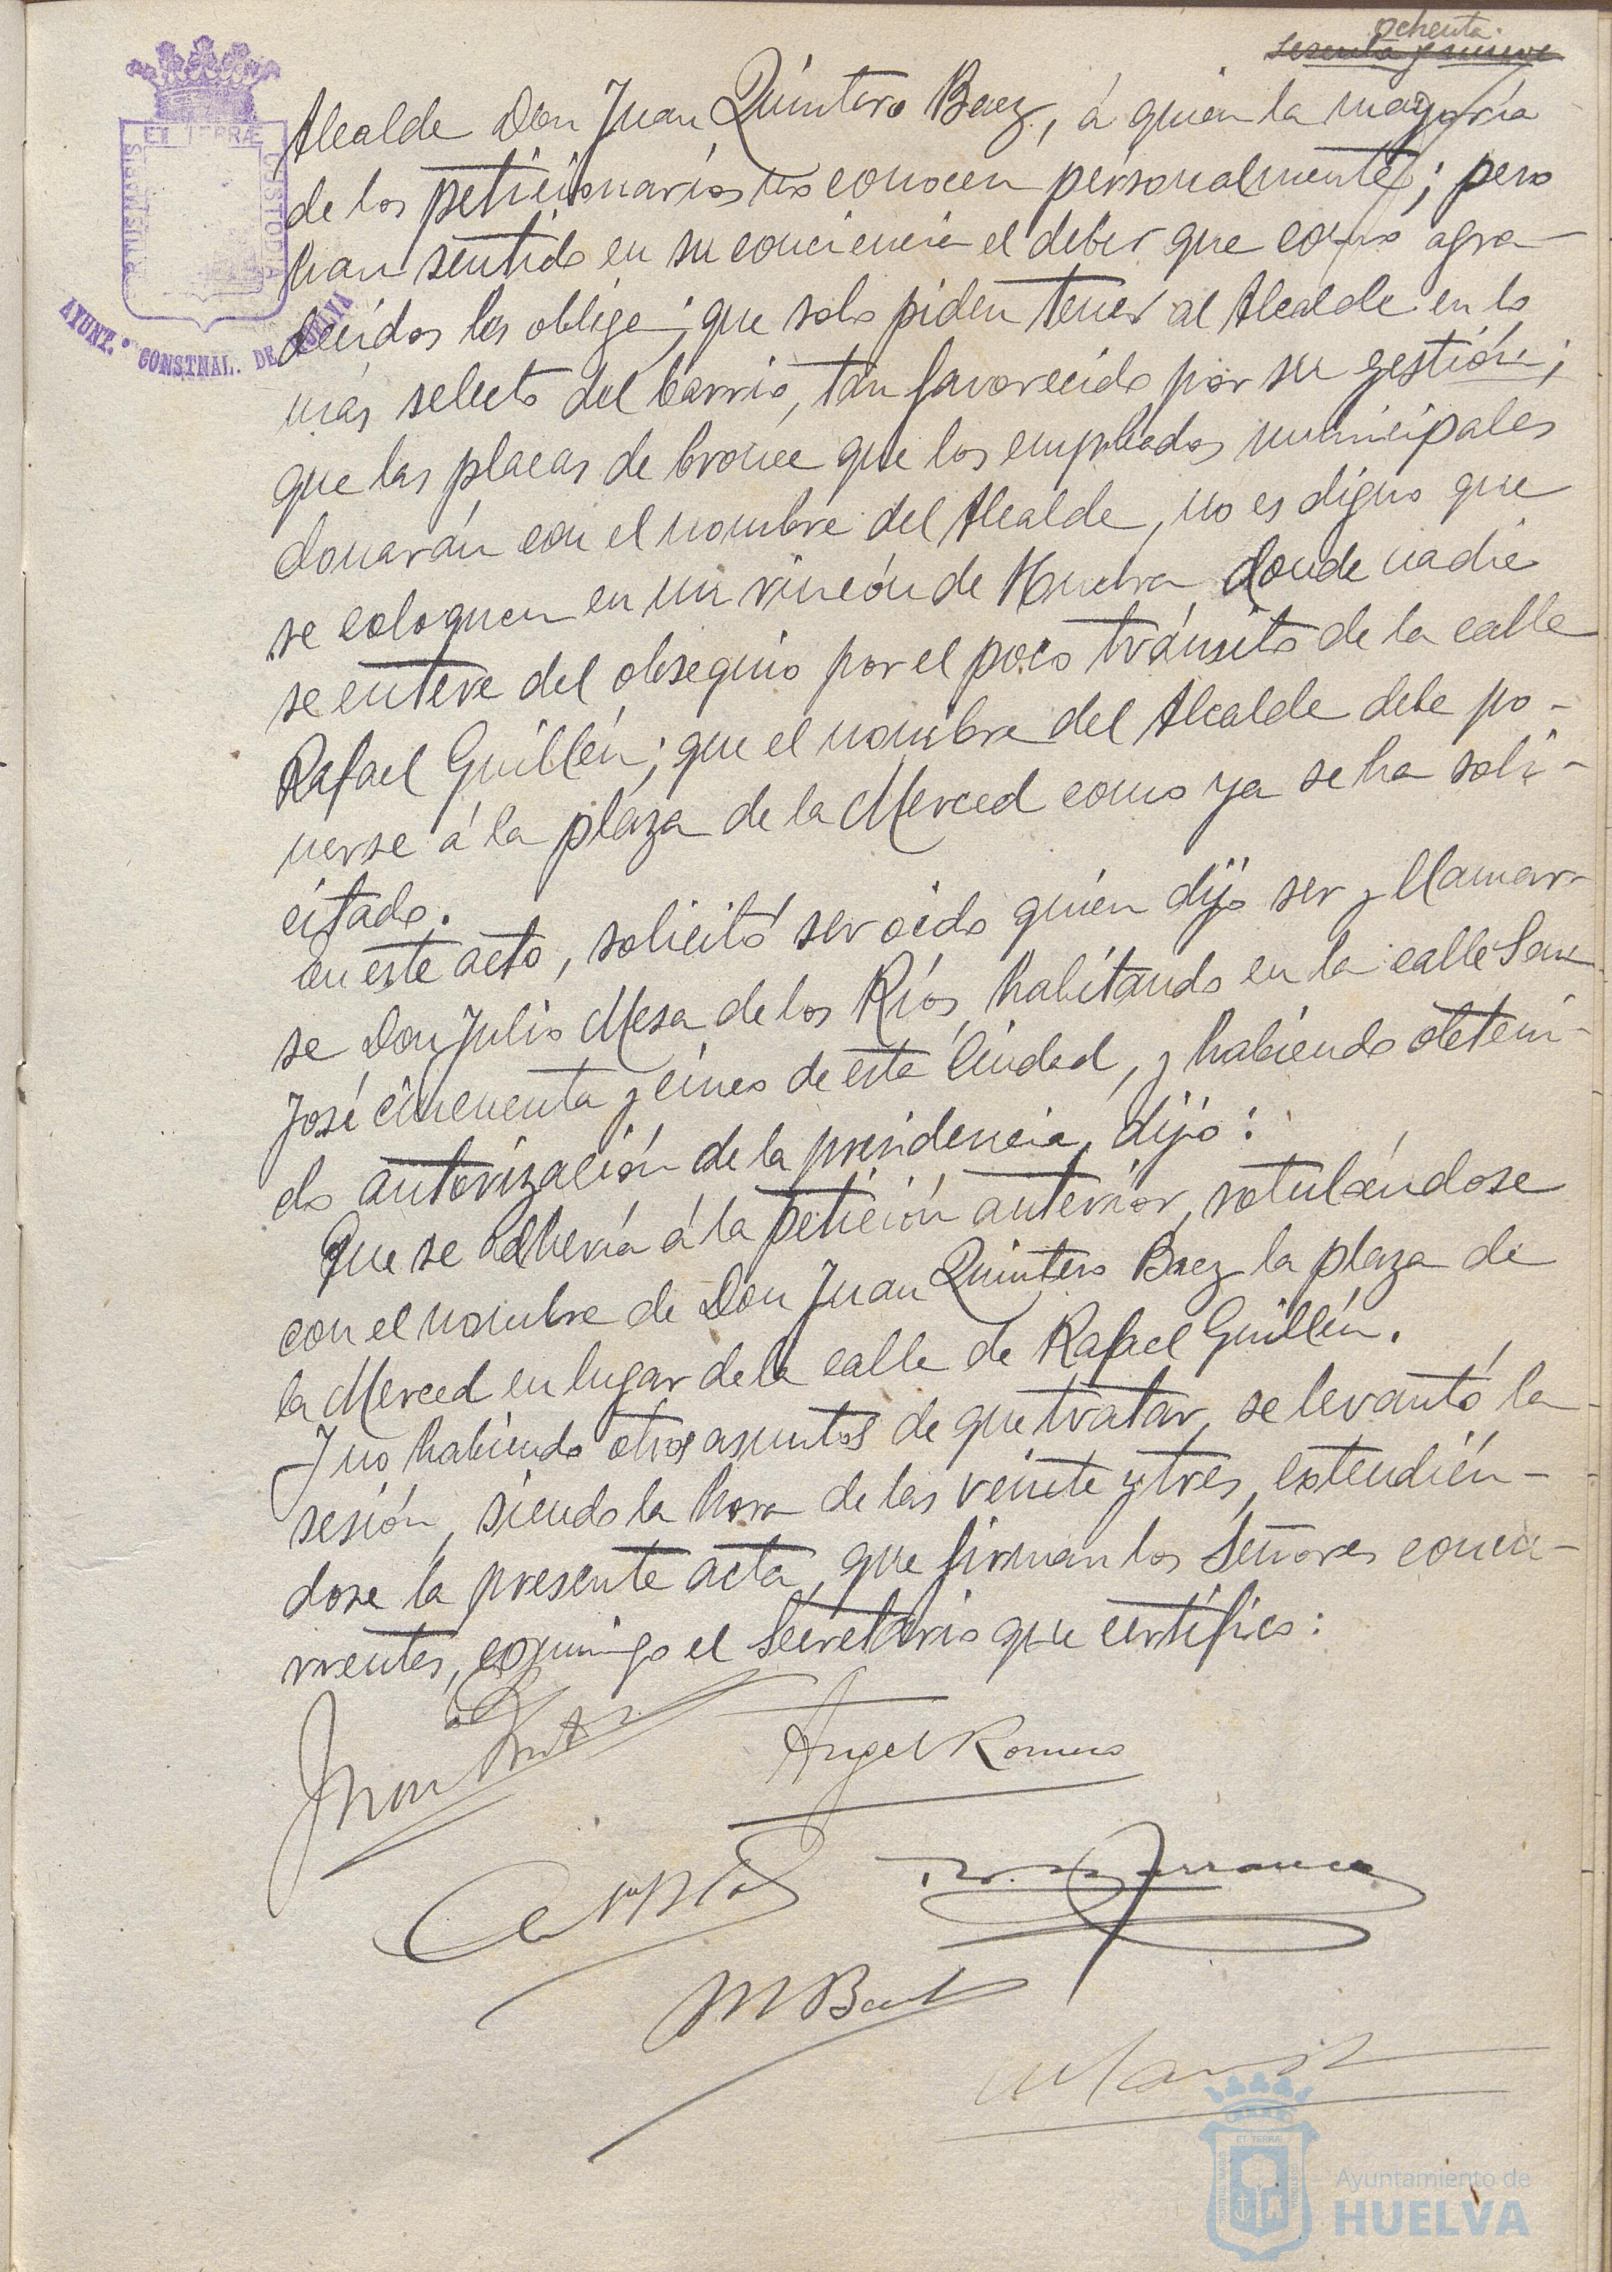 ochenta.
sesenta y nueve
Alcalde Don Juan Quintero Baez, á quien la mayoría
de los peticionarios no conocen personalmente; pero
han sentido en su conciencia el deber que como agra-
decidos les obliga; que solo piden tener al Alcalde en lo
más selecto del barrio, tan favorecido por su gestión;
que las placas de bronce que los empleados municipales
donarán con el nombre del Alcalde, no es digno que
se coloquen en un rincón de Huelva donde nadie
se entere del obsequio por el poco tránsito de la calle
Rafael Guillén; que el nombre del Alcalde debe po-
nerse á la plaza de la Merced como ya se ha soli-
citado.
En este acto, solicitó ser oido quien dijo ser y llamar-
se Don Julio Mesa de los Ríos, habitando en la calle San
José cincuenta y cinco de esta Ciudad, y habiendo obteni-
do autorización de la presidencia, dijo:
Que se adhería á la petición anterior, rotulándose
con el nombre de Don Juan Quintero Baez la plaza de
la Merced en lugar de la calle de Rafael Guillén.
Y no habiendo otros asuntos de que tratar, se levantó la
sesión, siendo la hora de las veinte y tres, extendién-
dose la presente acta, que firman los Señores concu-
rrentes, conmigo el Secretario que certifico:
Juan
Angel Romero
ET TERRÆ
CUSTODIA
AYUNT.º CONSTNAL. DE HUELVA
Ayuntamiento de
HUELVA